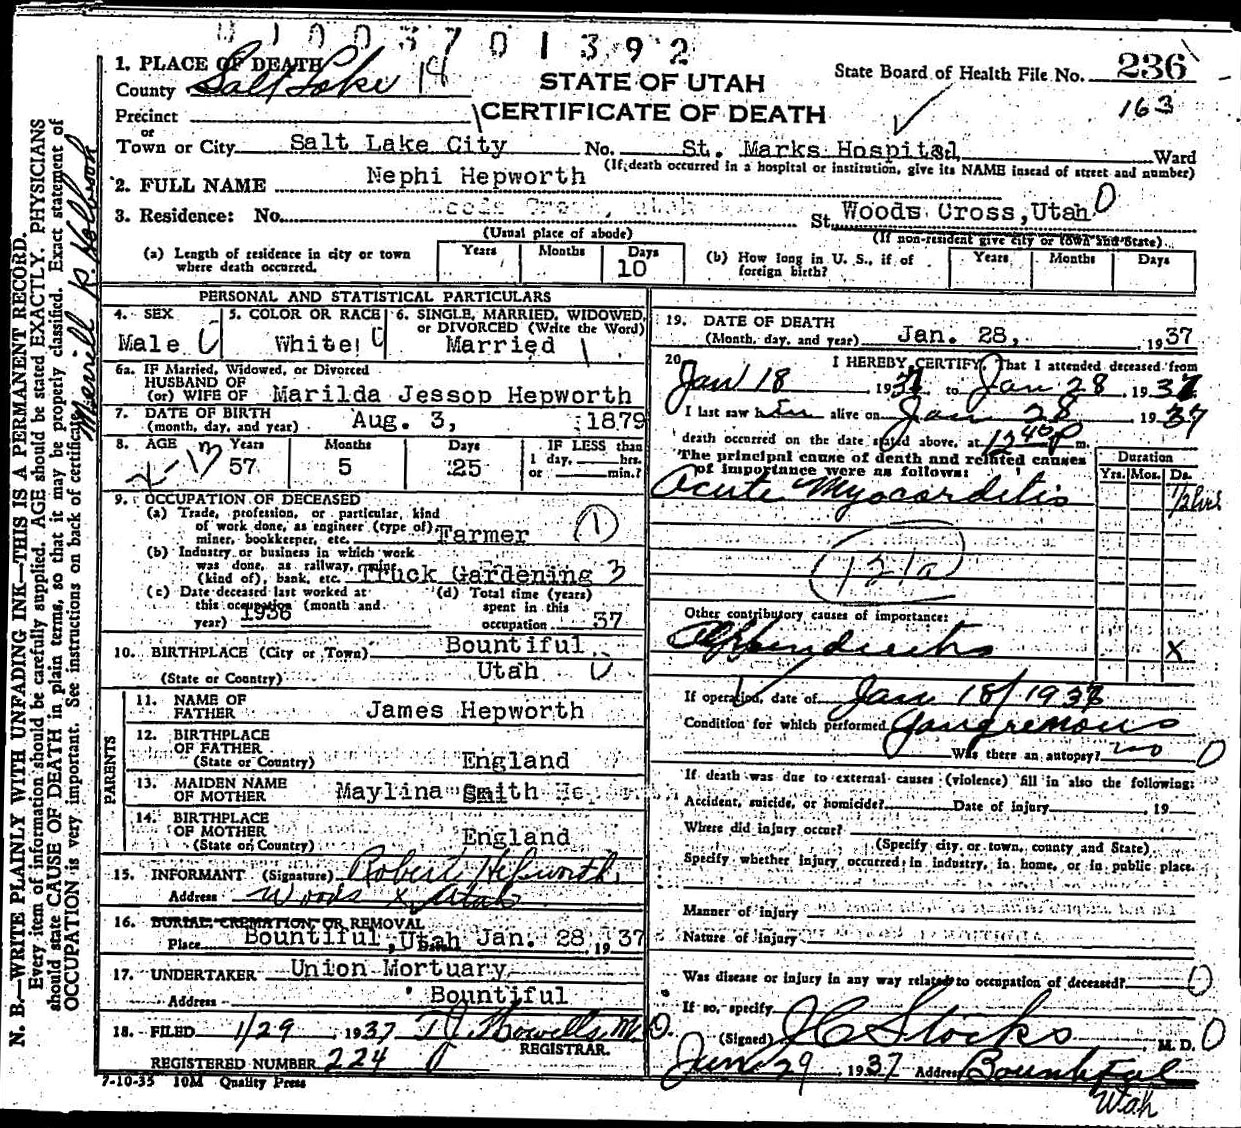 0 1 0 0 3 7 0 1 3 9 2
1. PLACE OF DEATH
County Salt Lake 19
STATE OF UTAH
CERTIFICATE OF DEATH
State Board of Health File No. 236
163
Precinct
or
Town or City Salt Lake City No. St. Marks Hospital Ward
(If death occurred in a hospital or institution, give its NAME insead of street and number)
2. FULL NAME Nephi Hepworth
3. Residence: No. St. Woods Cross, Utah 0
(Usual place of abode) (If non-resident give city or town and State)
(a) Length of residence in city or town where death occurred. Years Months Days 10
(b) How long in U. S., if of foreign birth? Years Months Days
PERSONAL AND STATISTICAL PARTICULARS
4. SEX Male
5. COLOR OR RACE White
6. SINGLE, MARRIED, WIDOWED, or DIVORCED (Write the Word) Married
6a. IF Married, Widowed, or Divorced
HUSBAND OF
(or) WIFE OF Marilda Jessop Hepworth
7. DATE OF BIRTH
(month, day, and year) Aug. 3, 1879
8. AGE Years 57 Months 5 Days 25
IF LESS than
1 day, hrs.
or min.?
9. OCCUPATION OF DECEASED
(a) Trade, profession, or particular, kind
of work done, as engineer (type of)
miner, bookkeeper, etc. Farmer 1
(b) Industry or business in which work
was done, as railway, mine
(kind of), bank, etc. Truck Gardening 3
(c) Date deceased last worked at
this occupation (month and
year) 1936
(d) Total time (years)
spent in this
occupation 37
10. BIRTHPLACE (City or Town) Bountiful
(State or Country) Utah
PARENTS
11. NAME OF
FATHER James Hepworth
12. BIRTHPLACE
OF FATHER
(State or Country) England
13. MAIDEN NAME
OF MOTHER Maylina Smith
14. BIRTHPLACE
OF MOTHER
(State or Country) England
15. INFORMANT (Signature) Robert Hepworth
Address Woods X Utah
16. BURIAL, CREMATION, OR REMOVAL
Place Bountiful, Utah Jan. 28, 1937
17. UNDERTAKER Union Mortuary
Address Bountiful
18. FILED 1/29 1937 T J Howells M.D.
REGISTRAR.
REGISTERED NUMBER 224
7-10-35 10M Quality Press
19. DATE OF DEATH
(Month, day, and year) Jan. 28, 1937
20. I HEREBY CERTIFY, That I attended deceased from
Jan 18 1937 to Jan 28 1937
I last saw him alive on Jan 28 1937
death occurred on the date stated above, at 12 40 P m.
The principal cause of death and related causes
of importance were as follows:
Duration
Yrs. Mos. Ds.
Acute Myocarditis 12 hrs
121a
Other contributory causes of importance:
Appendicitis X
If operation, date of Jan 18/1937
Condition for which performed Gangrenous
Was there an autopsy? no 0
If death was due to external causes (violence) fill in also the following:
Accident, suicide, or homicide? Date of injury 19
Where did injury occur?
(Specify city or town, county and State)
Specify whether injury occurred in industry, in home, or in public place.
Manner of injury
Nature of injury
Was disease or injury in any way related to occupation of deceased? 0
If so, specify
(Signed) J C Stocks M. D. 0
Jan 29 1937 Address Bountiful
Utah
N. B.—WRITE PLAINLY WITH UNFADING INK—THIS IS A PERMANENT RECORD.
Every item of information should be carefully supplied. AGE should be stated EXACTLY. PHYSICIANS
should state CAUSE OF DEATH in plain terms, so that it may be properly classified. Exact statement of
OCCUPATION is very important. See instructions on back of certificate.
Merrill